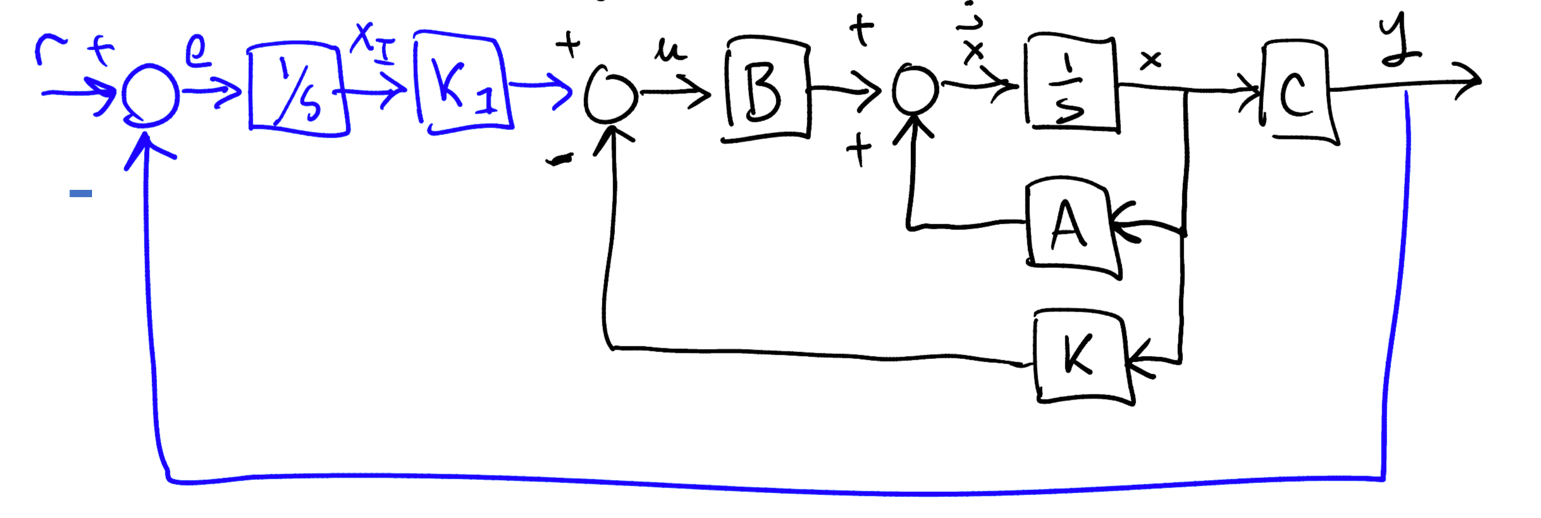 r + e 1/s x_I K_I + u B + ẋ 1/s x C y
- - +
A
K